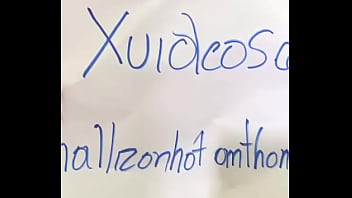 Xuideosc
nallizonhot omthon